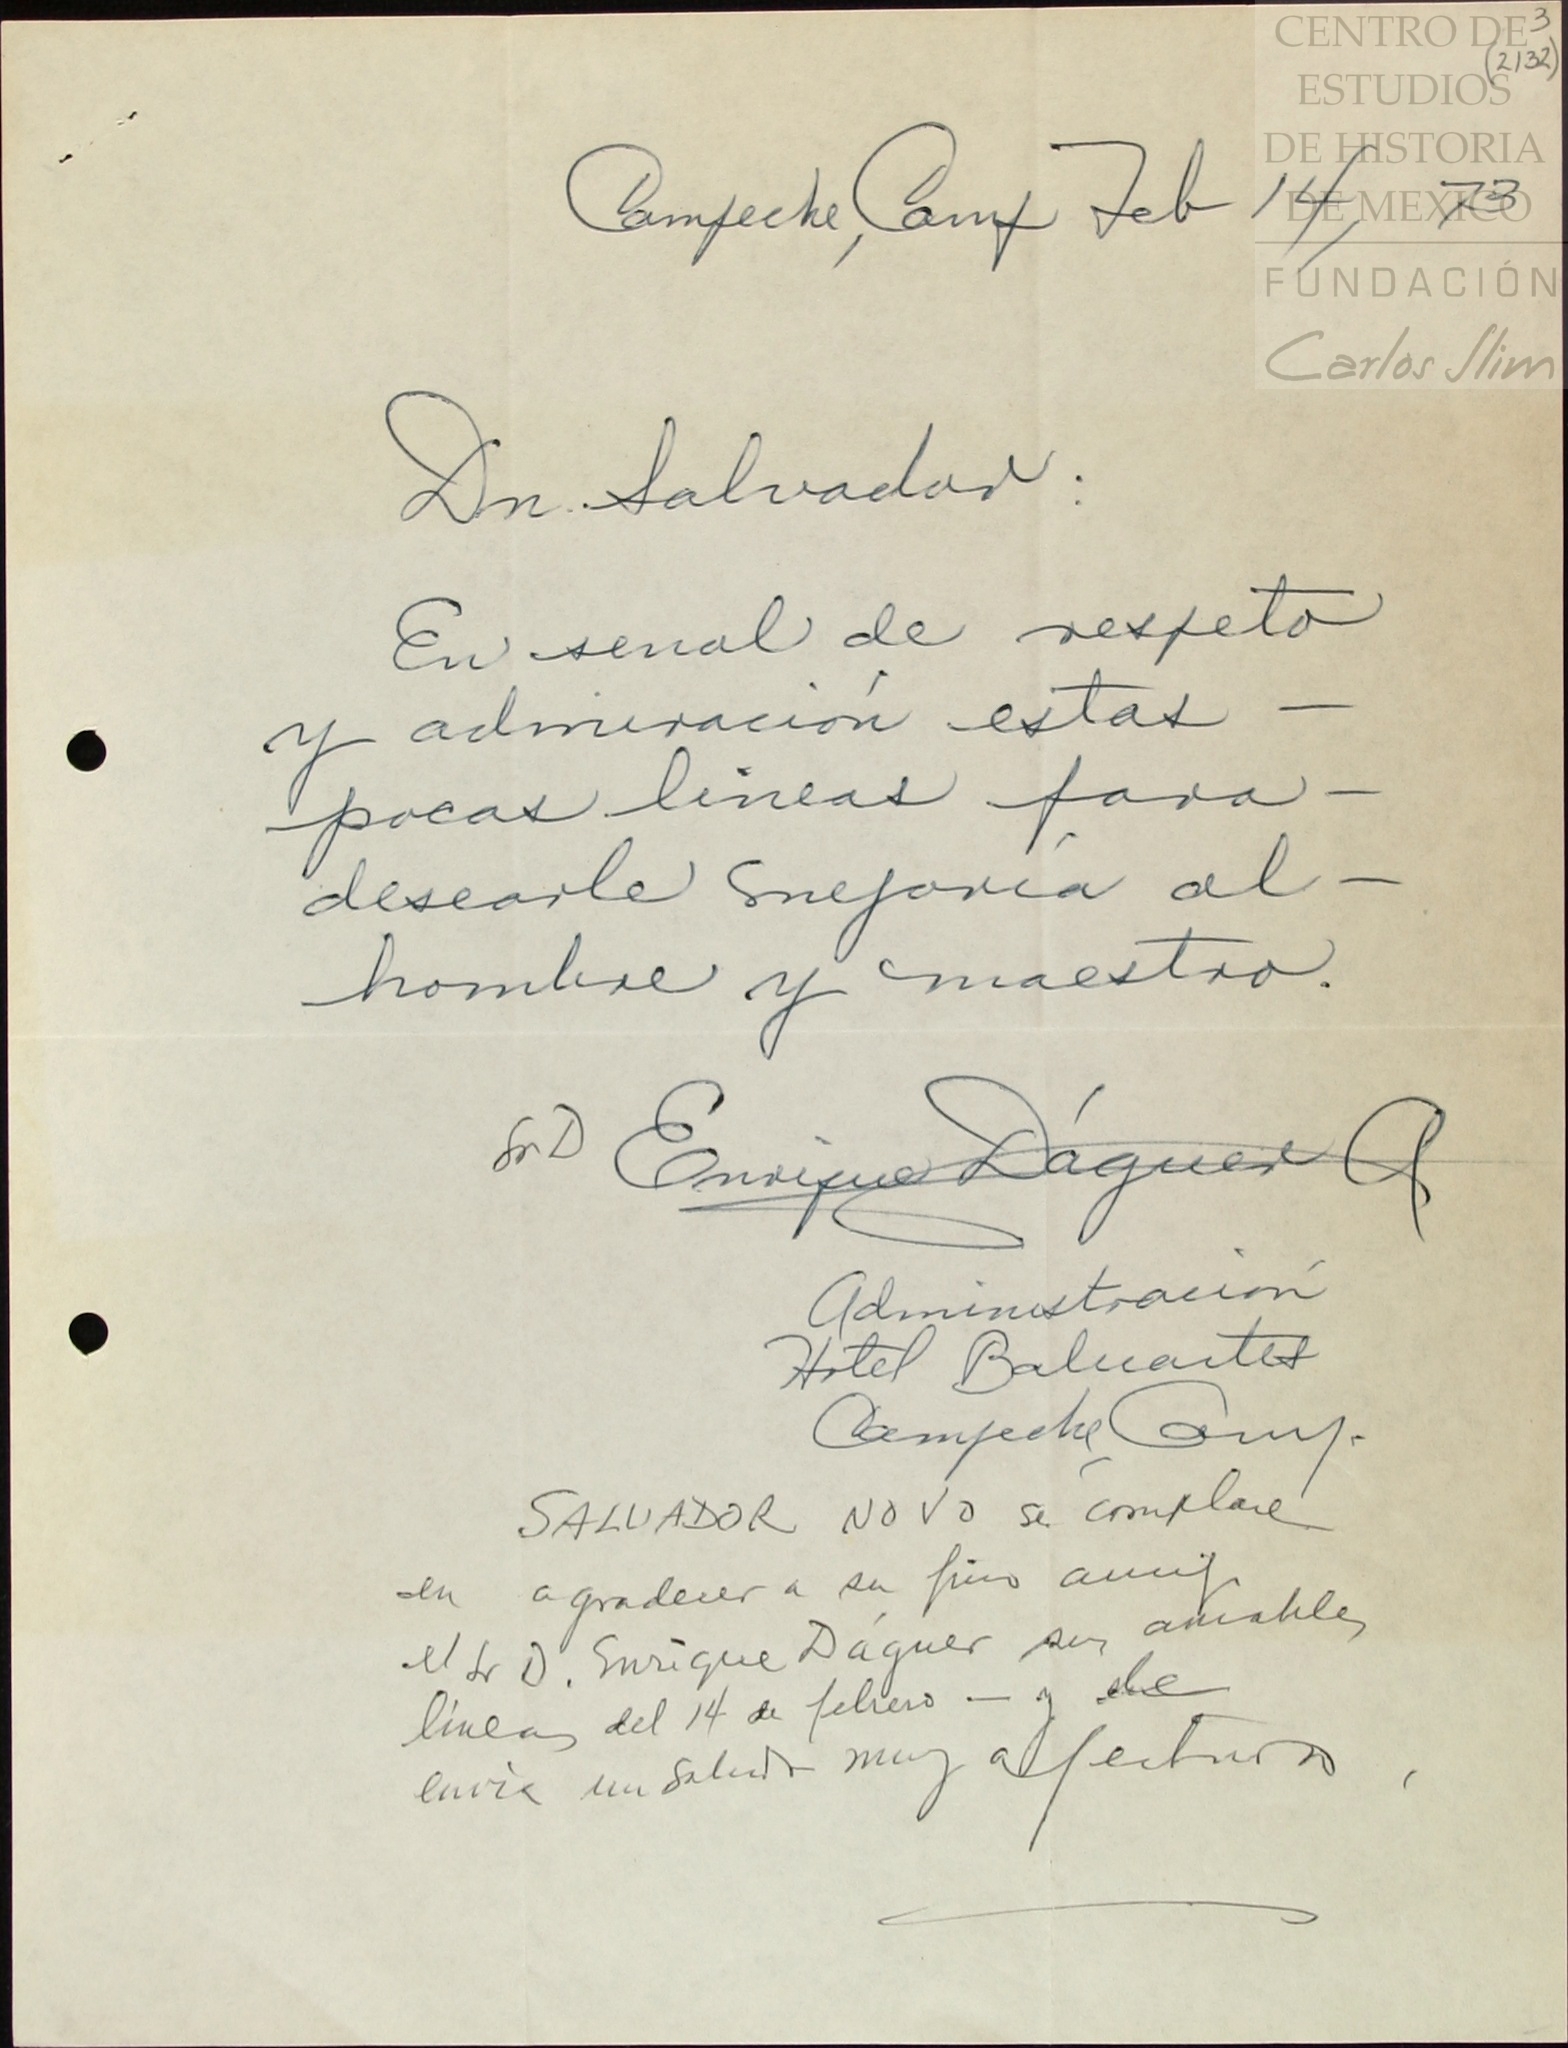 3
(2132)
CENTRO DE
ESTUDIOS
DE HISTORIA
DE MEXICO
FUNDACIÓN
Carlos Slim
Campeche, Camp Feb 14, 73
Dn. Salvador:
En senal de respeto
y admiración estas —
pocas lineas para —
desearle mejoría al —
hombre y maestro.
Sr D Enrique Dáguer A
Administración
Hotel Baluartes
Campeche, Camp.
SALVADOR NOVO se complace
en agradecer a su fino amigo
el Sr D. Enrique Dáguer sus amables
líneas del 14 de febrero — y
envía un saludo muy afectuoso.